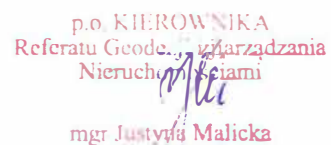 p.o. KIEROWNIKA
Referatu Geodezji i Zarządzania
Nieruchomościami
mgr Justyna Malicka